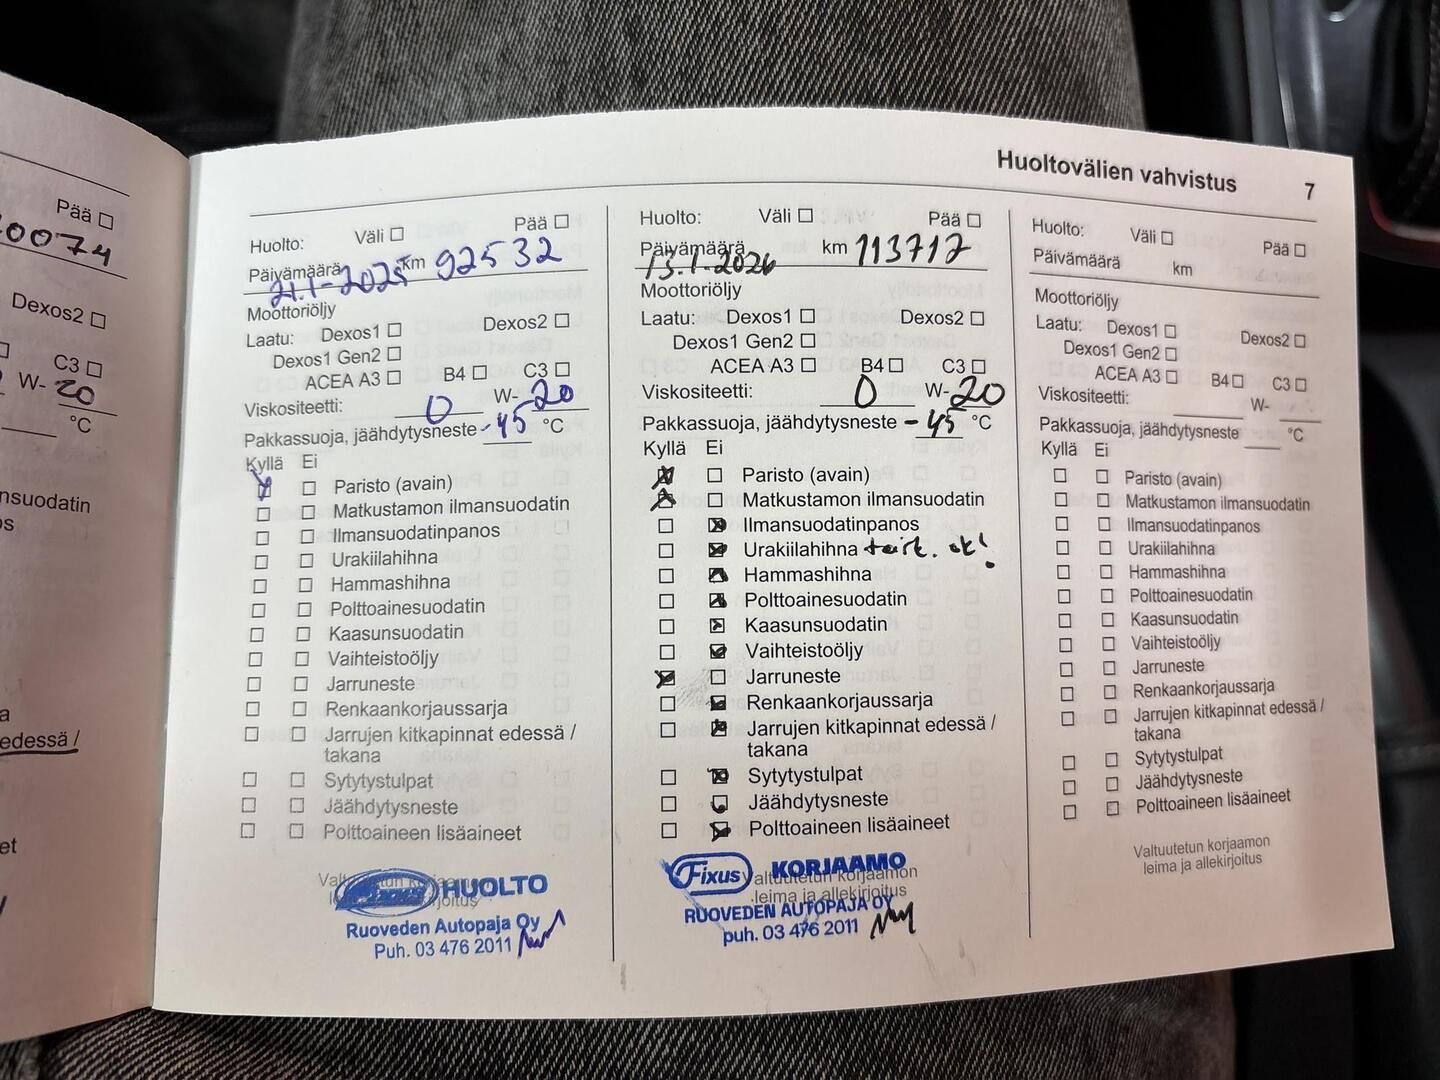 Pää ☐
0074
Dexos2 ☐
C3 ☐
W- 20
°C
nsuodatin
os
a
edessä /
et
Huoltovälien vahvistus 7
Huolto: Väli ☐ Pää ☐
Päivämäärä 21.1-2025 km 92532
Moottoriöljy
Laatu: Dexos1 ☐ Dexos2 ☐
Dexos1 Gen2 ☐
ACEA A3 ☐ B4 ☐ C3 ☐
Viskositeetti: 0 W- 20
Pakkassuoja, jäähdytysneste -45 °C
Kyllä Ei
☒ ☐ Paristo (avain)
☐ ☐ Matkustamon ilmansuodatin
☐ ☐ Ilmansuodatinpanos
☐ ☐ Urakiilahihna
☐ ☐ Hammashihna
☐ ☐ Polttoainesuodatin
☐ ☐ Kaasunsuodatin
☐ ☐ Vaihteistoöljy
☐ ☐ Jarruneste
☐ ☐ Renkaankorjaussarja
☐ ☐ Jarrujen kitkapinnat edessä /
takana
☐ ☐ Sytytystulpat
☐ ☐ Jäähdytysneste
☐ ☐ Polttoaineen lisäaineet
Fixus HUOLTO
Ruoveden Autopaja Oy
Puh. 03 476 2011
Huolto: Väli ☐ Pää ☐
Päivämäärä 13.1.2026 km 113717
Moottoriöljy
Laatu: Dexos1 ☐ Dexos2 ☐
Dexos1 Gen2 ☐
ACEA A3 ☐ B4 ☐ C3 ☐
Viskositeetti: 0 W- 20
Pakkassuoja, jäähdytysneste -45 °C
Kyllä Ei
☒ ☐ Paristo (avain)
☒ ☐ Matkustamon ilmansuodatin
☐ ☒ Ilmansuodatinpanos
☐ ☒ Urakiilahihna tark. ok!
☐ ☒ Hammashihna
☐ ☒ Polttoainesuodatin
☐ ☒ Kaasunsuodatin
☐ ☒ Vaihteistoöljy
☒ ☐ Jarruneste
☐ ☒ Renkaankorjaussarja
☐ ☒ Jarrujen kitkapinnat edessä /
takana
☐ ☒ Sytytystulpat
☐ ☒ Jäähdytysneste
☐ ☒ Polttoaineen lisäaineet
Valtuutetun korjaamon
leima ja allekirjoitus
Fixus KORJAAMO
RUOVEDEN AUTOPAJA OY
puh. 03 476 2011
Huolto: Väli ☐ Pää ☐
Päivämäärä km
Moottoriöljy
Laatu: Dexos1 ☐ Dexos2 ☐
Dexos1 Gen2 ☐
ACEA A3 ☐ B4 ☐ C3 ☐
Viskositeetti: W-
Pakkassuoja, jäähdytysneste °C
Kyllä Ei
☐ ☐ Paristo (avain)
☐ ☐ Matkustamon ilmansuodatin
☐ ☐ Ilmansuodatinpanos
☐ ☐ Urakiilahihna
☐ ☐ Hammashihna
☐ ☐ Polttoainesuodatin
☐ ☐ Kaasunsuodatin
☐ ☐ Vaihteistoöljy
☐ ☐ Jarruneste
☐ ☐ Renkaankorjaussarja
☐ ☐ Jarrujen kitkapinnat edessä /
takana
☐ ☐ Sytytystulpat
☐ ☐ Jäähdytysneste
☐ ☐ Polttoaineen lisäaineet
Valtuutetun korjaamon
leima ja allekirjoitus